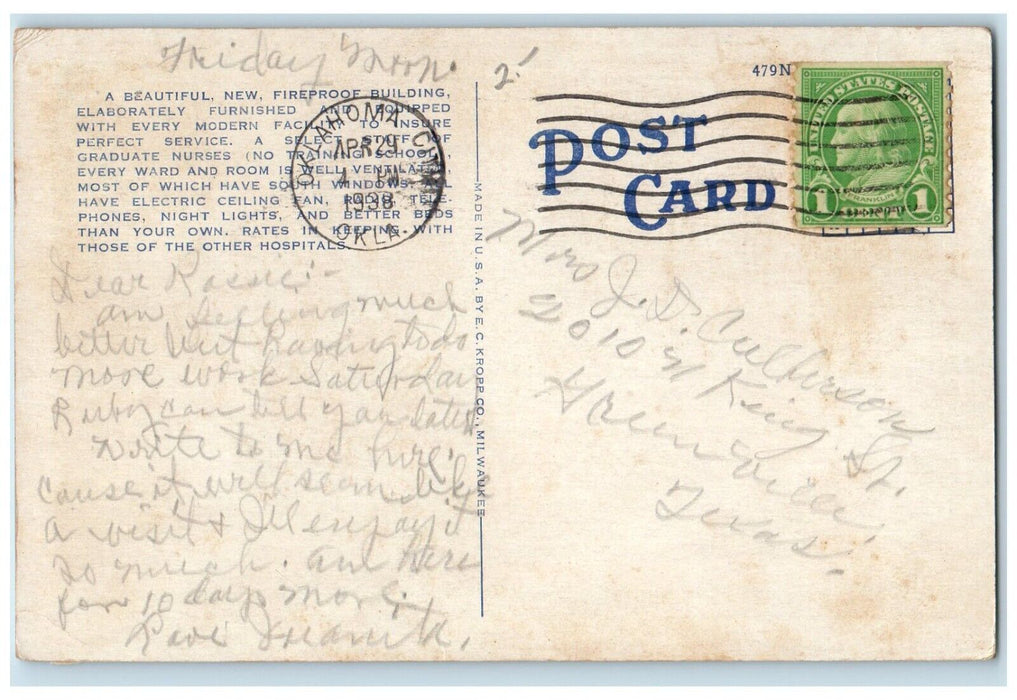 Friday Morn.
2.
479N
A BEAUTIFUL, NEW, FIREPROOF BUILDING,
ELABORATELY FURNISHED AND EQUIPPED
WITH EVERY MODERN FACILITY TO INSURE
PERFECT SERVICE. A SELECT STAFF OF
GRADUATE NURSES (NO TRAINING SCHOOL).
EVERY WARD AND ROOM IS WELL VENTILATED,
MOST OF WHICH HAVE SOUTH WINDOWS. ALL
HAVE ELECTRIC CEILING FAN, RADIO, TELE-
PHONES, NIGHT LIGHTS, AND BETTER BEDS
THAN YOUR OWN. RATES IN KEEPING WITH
THOSE OF THE OTHER HOSPITALS.
OKLAHOMA CITY
APR 29
1938
OKLA.
POST
CARD
UNITED STATES POSTAGE
1 FRANKLIN 1
MADE IN U.S.A. BY E. C. KROPP CO., MILWAUKEE
Dear Rossie:-
am feeling much
better but having to do
more work Saturday
Ruby can tell you later
write to me here
cause it will seem like
a visit & I'll enjoy it
so much. am here
for 10 days more.
Love Juanita.
Mrs J. D. Culberson
2010 N King St.
Greenville,
Texas.